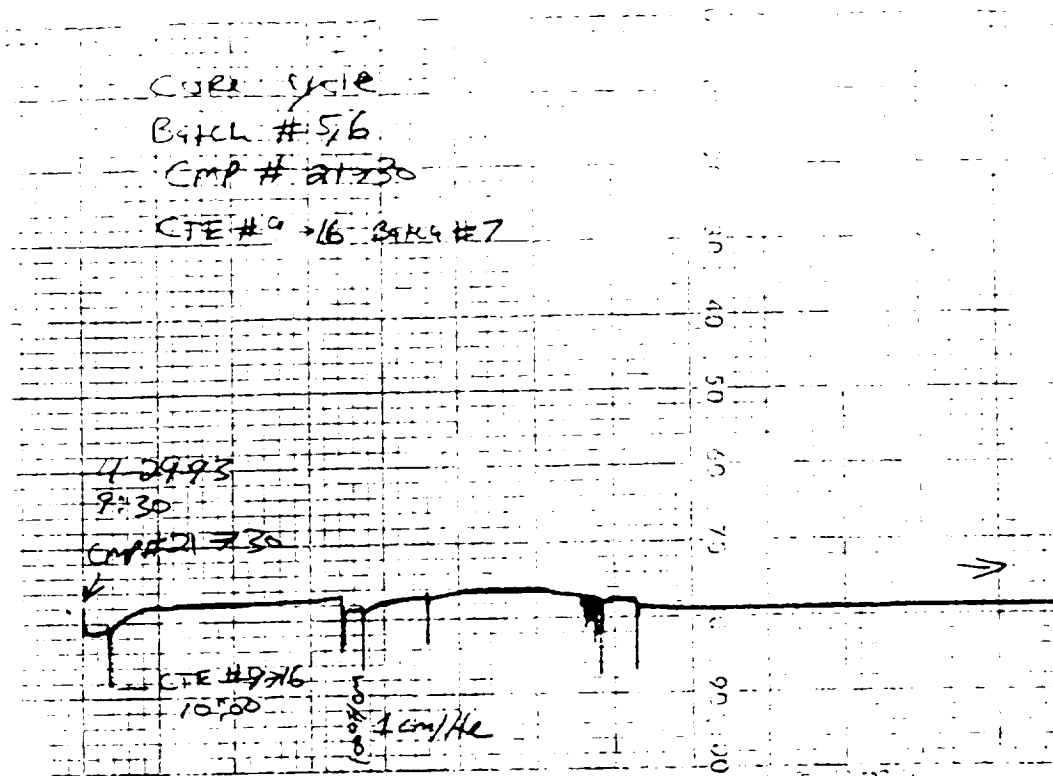 CURE CYCLE
Batch # 5,6
CMP # 21→30
CTE # 9 → 16 Batch #7
40
50
60
70
4-29-93
9:30
CMP# 21 → 30
CTE #9→16
10:00
1 cm/Hr
90